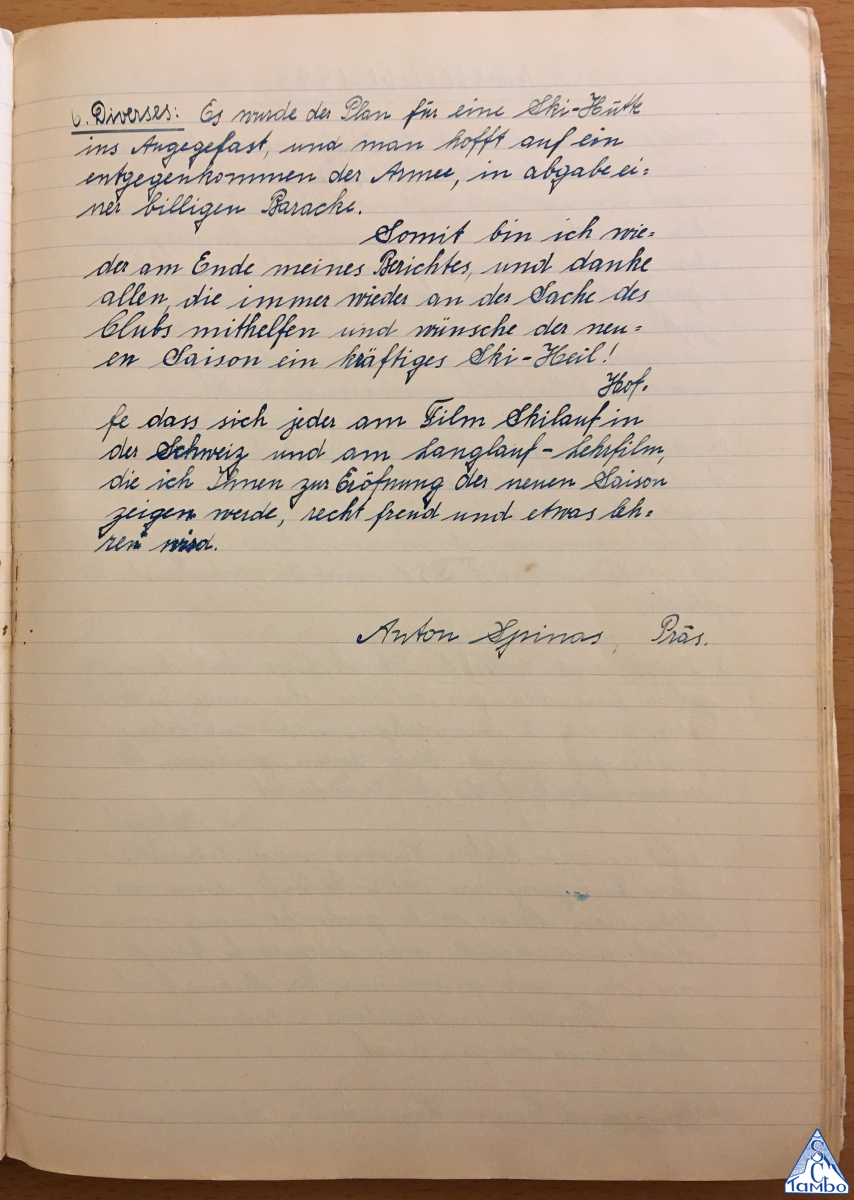 6. Diverses: Es wurde der Plan für eine Ski-Hütte
ins Augegefast, und man hofft auf ein
entgegenkommen der Armee, in abgabe ei=
ner billigen Baracke.
Somit bin ich wie=
der am Ende meines Berichtes, und danke
allen, die immer wieder an der Sache des
Clubs mithelfen und wünsche der neu=
en Saison ein kräftiges Ski-Heil!
Hof=
fe dass sich jeder am Film Skilauf in
der Schweiz und am Langlauf-Lehrfilm,
die ich Ihnen zur Eröfnung der neuen Saison
zeigen werde, recht freud und etwas leh=
ren wird.
Anton Spinas, Präs.
SC
Tambo